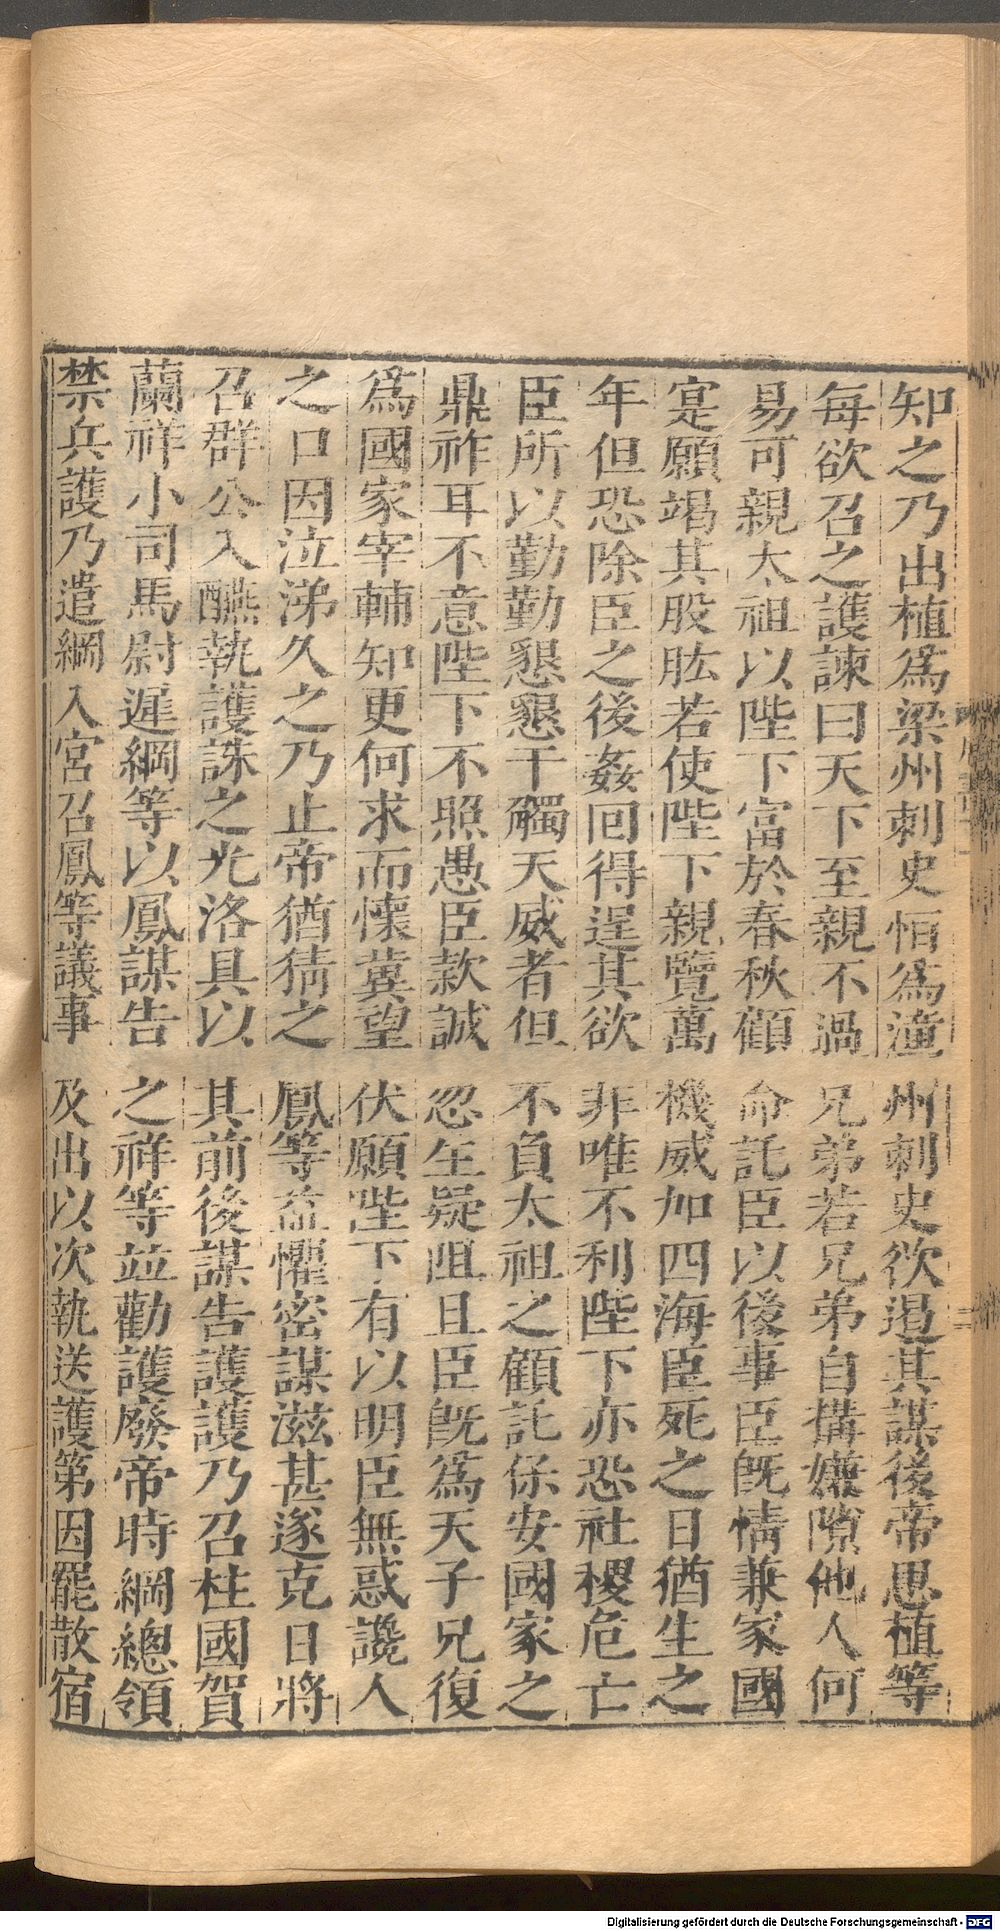 知之乃出植爲梁州刺史恒爲潼州刺史欲遏其謀後帝思植等
每欲召之護諫曰天下至親不過兄弟若兄弟自搆嫌隙他人何
易可親太祖以陛下富於春秋顧命託臣以後事臣既情兼家國
寔願竭其股肱若使陛下親覽萬機威加四海臣死之日猶生之
年但恐除臣之後姦回得逞其欲非唯不利陛下亦恐社稷危亡
臣所以勤勤懇懇干觸天威者但不負太祖之顧託保安國家之
鼎祚耳不意陛下不照愚臣款誠忽生疑阻且臣既爲天子兄復
爲國家宰輔知更何求而懷冀望伏願陛下有以明臣無惑讒人
之口因泣涕久之乃止帝猶猜之鳳等益懼密謀滋甚遂克日將
召群公入醼執護誅之光洛具以其前後謀告護護乃召柱國賀
蘭祥小司馬尉遲綱等以鳳謀告之祥等並勸護廢帝時綱總領
禁兵護乃遣綱入宮召鳳等議事及出以次執送護第因罷散宿
Digitalisierung gefördert durch die Deutsche Forschungsgemeinschaft - DFG